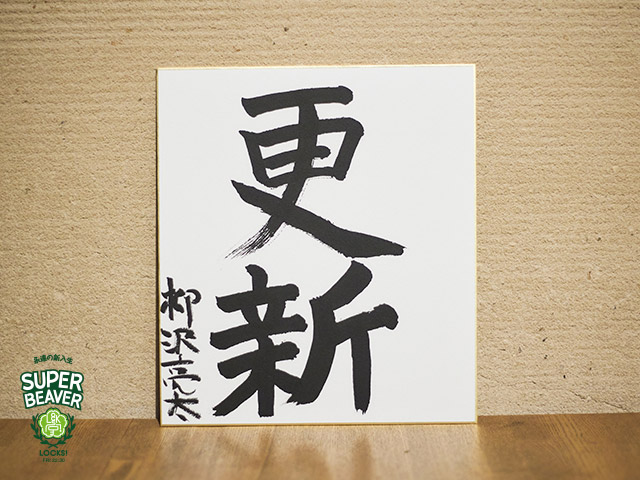 更新
柳沢亮太
永遠の新入生
SUPER
BEAVER
LOCKS!